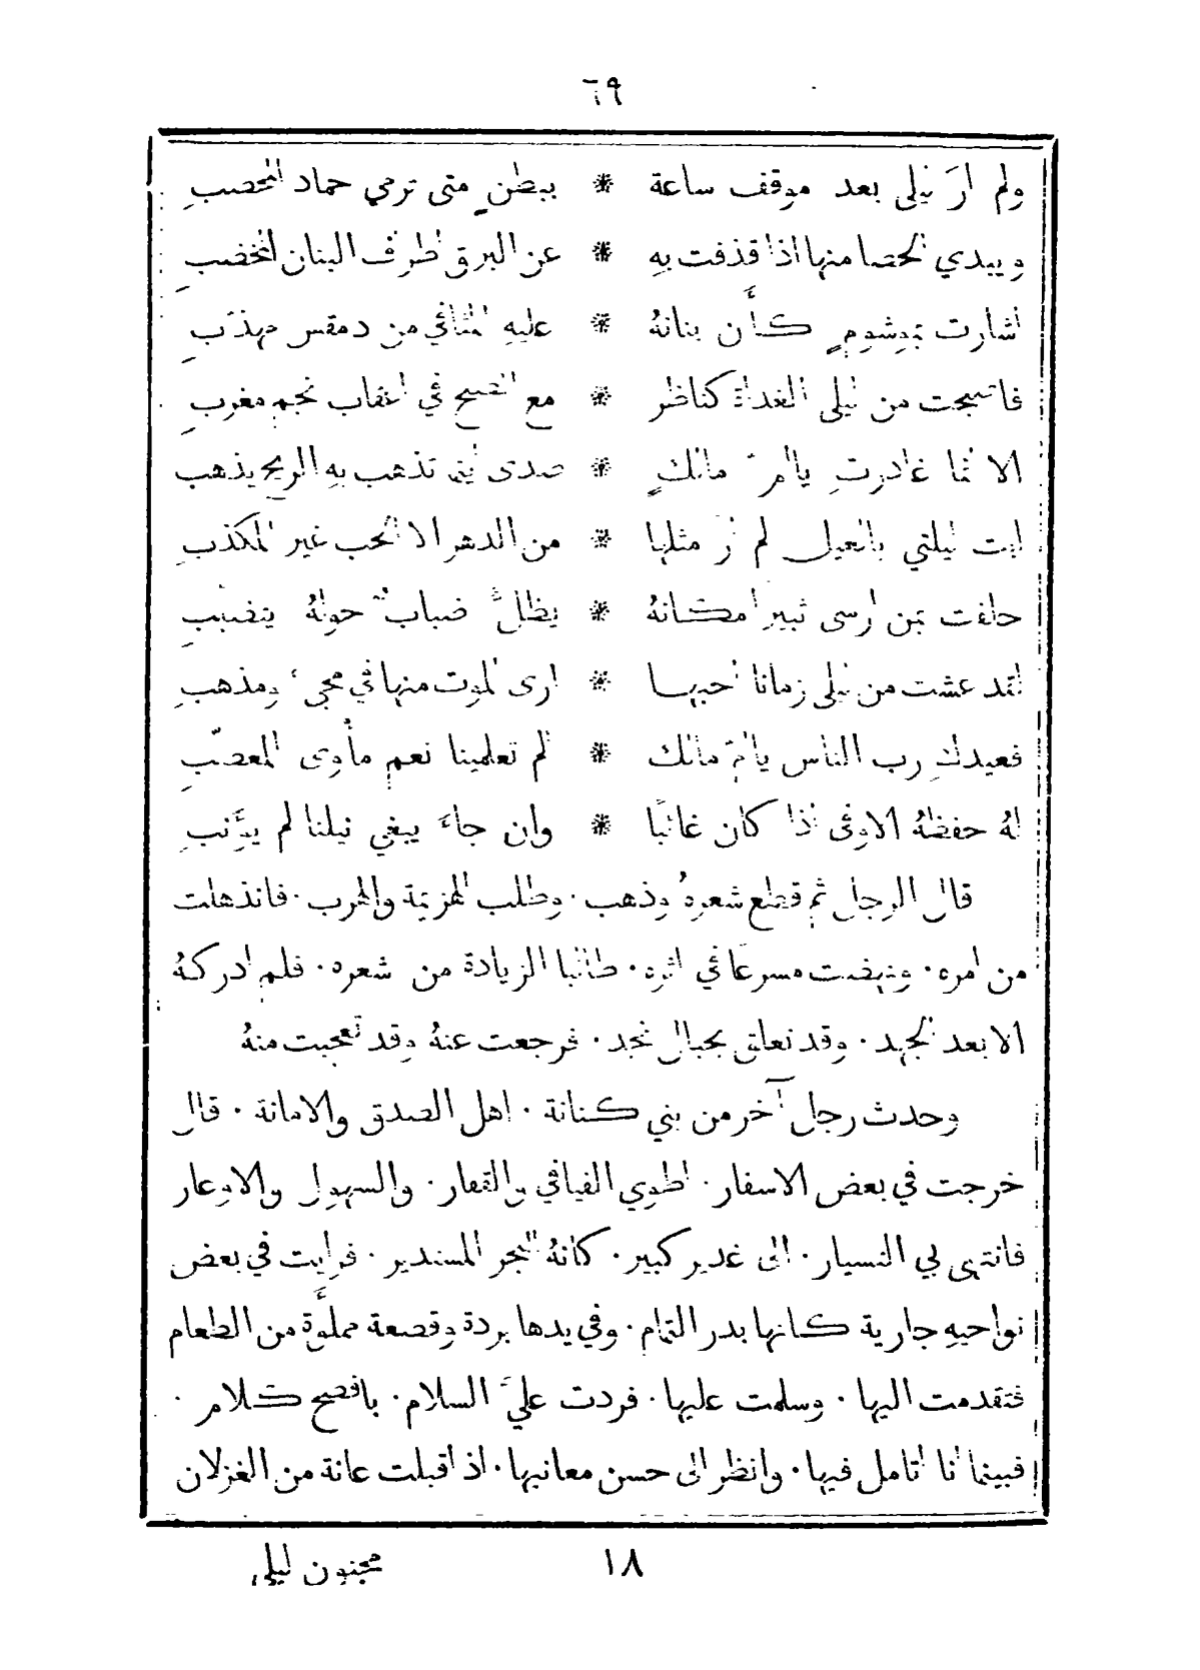 ٦٩
ولم ارَ ليلى بعد موقف ساعة * ببطنٍ متى ترمي حماد المحصبِ
ويبدي الحصا منها اذا قذفت بهِ * عن البرق اطراف البنان المخضبِ
اشارت بموشومٍ كأن بنانهُ * عليهِ المثاني من دمقس مهذبِ
فاصبحت من ليلى الغداة كناظر * مع الصبح في اعقاب نجم مغربِ
الا انما غادرتِ يا امَّ مالكٍ * صدى اينما تذهب بهِ الريح يذهب
ليت ليلتي بالغيل لم ارَ مثلها * من الدهر الا الحب غير المكذبِ
حلفت بمن ارسى ثبيرا مكانهُ * يظلُّ ضبابٌ حولهُ يتضببِ
لقد عشت من ليلى زمانا احبها * ارى الموت منها في مجيء ومذهبِ
فعيدكِ رب الناس يا امَّ مالك * الم تعلمينا نعم مأوى المعصّبِ
لهُ حفظهُ الاوفى اذا كان غائبًا * وان جاءَ يبغي نيلنا لم يؤَنبِ
قال الرجل ثم قطع شعرهُ وذهب . وطلب الهزيمة والهرب . فانذهلت
من امره . ونهضت مسرعًا في اثره . طالبا الزيادة من شعره . فلم ادركهُ
الا بعد الجهد . وقد تعلق بجبال نجد . فرجعت عنهُ وقد تعجبت منهُ
وحدث رجل آخر من بني كنانة . اهل الصدق والامانة . قال
خرجت في بعض الاسفار . اطوي الفيافي والقفار . والسهول والاوعار
فانتهى بي التسيار . الى غدير كبير . كانهُ البحر المستدير . فرايت في بعض
نواحيهِ جارية كانها بدر التمام . وفي يدها بردة وقصعة مملوأَة من الطعام
فتقدمت اليها . وسلمت عليها . فردت عليَّ السلام . بافصح كلام .
فبينما انا اتامل فيها . وانظر الى حسن معانيها . اذ اقبلت عانة من الغزلان
١٨
مجنون ليلى